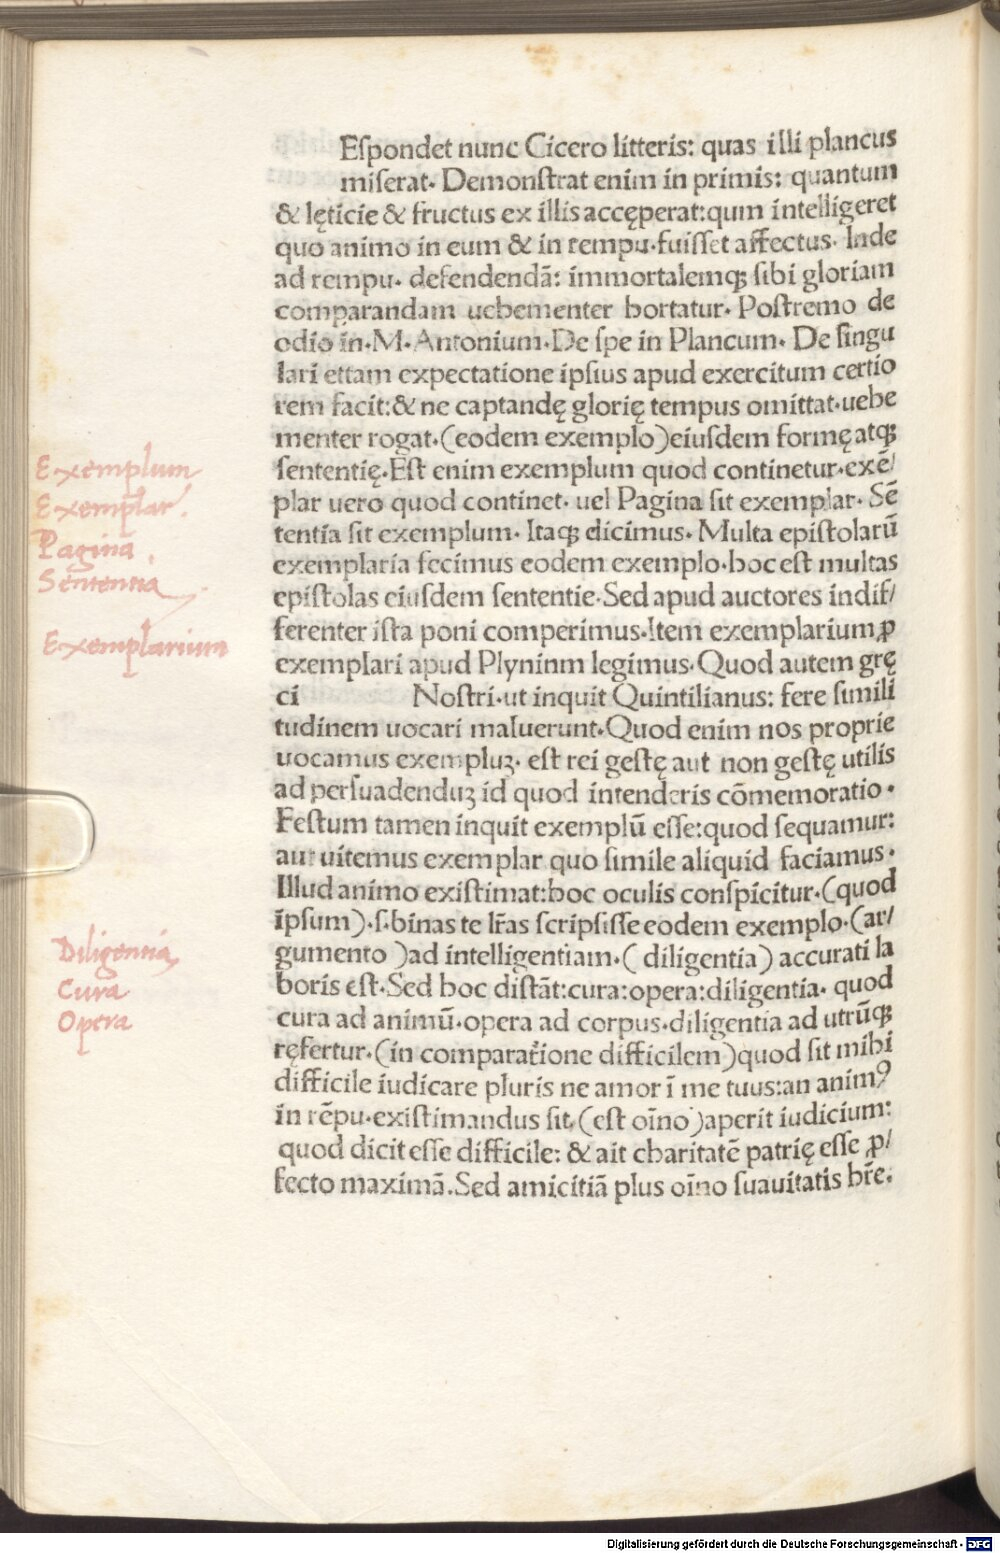 Eſpondet nunc Cicero litteris: quas illi plancus
miſerat· Demonſtrat enim in primis: quantum
& lęticie & fructus ex illis accęperat:qum intelligeret
quo animo in eum & in rempu·fuiſſet affectus· Inde
ad rempu· defendendā: immortalemqꝫ ſibi gloriam
comparandam uehementer hortatur· Poſtremo de
odio in·M·Antonium·De ſpe in Plancum· De ſingu
lari ettam expectatione ipſius apud exercitum certio
rem facit:& ne captandę glorię tempus omittat·uehe
menter rogat·(eodem exemplo)eiuſdem formę atqꝫ
ſententię·Eſt enim exemplum quod continetur·exē/
plar uero quod continet· uel Pagina ſit exemplar· Sē
tentia ſit exemplum· Itaqꝫ dicimus· Multa epiſtolarū
exemplaria fecimus eodem exemplo·hoc eſt multas
epiſtolas eiuſdem ſententie·Sed apud auctores indif/
ferenter iſta poni comperimus·Item exemplarium ꝓ
exemplari apud Plyninm legimus·Quod autem grę
ci Noſtri·ut inquit Quintilianus: fere ſimili
tudinem uocari maluerunt·Quod enim nos proprie
uocamus exempluꝫ· eſt rei geſtę aut non geſtę utilis
ad perſuadenduꝫ id quod intenderis cōmemoratio·
Feſtum tamen inquit exemplū eſſe:quod ſequamur:
aut uitemus exemplar quo ſimile aliquid faciamus·
Illud animo exiſtimat:hoc oculis conſpicitur·(quod
ipſum)·ſ·binas te lr̄as ſcripſiſſe eodem exemplo·(ar/
gumento )ad intelligentiam·( diligentia) accurati la
boris eſt·Sed hoc diſtāt:cura:opera:diligentia· quod
cura ad animū·opera ad corpus·diligentia ad utrūqꝫ
ręfertur·(in comparatione difficilem)quod ſit mihi
difficile iudicare pluris ne amor ī me tuus:an animꝰ
in rēpu·exiſtimandus ſit·(eſt oīno)aperit iudicium:
quod dicit eſſe difficile: & ait charitatē patrię eſſe ꝓ/
fecto maximā·Sed amicitiā plus oīno ſuauitatis hr̄e·
Exemplum
Exemplar.
Pagina.
Sententia
Exemplarium
Diligentia
Cura
Opera
Digitalisierung gefördert durch die Deutsche Forschungsgemeinschaft - DFG